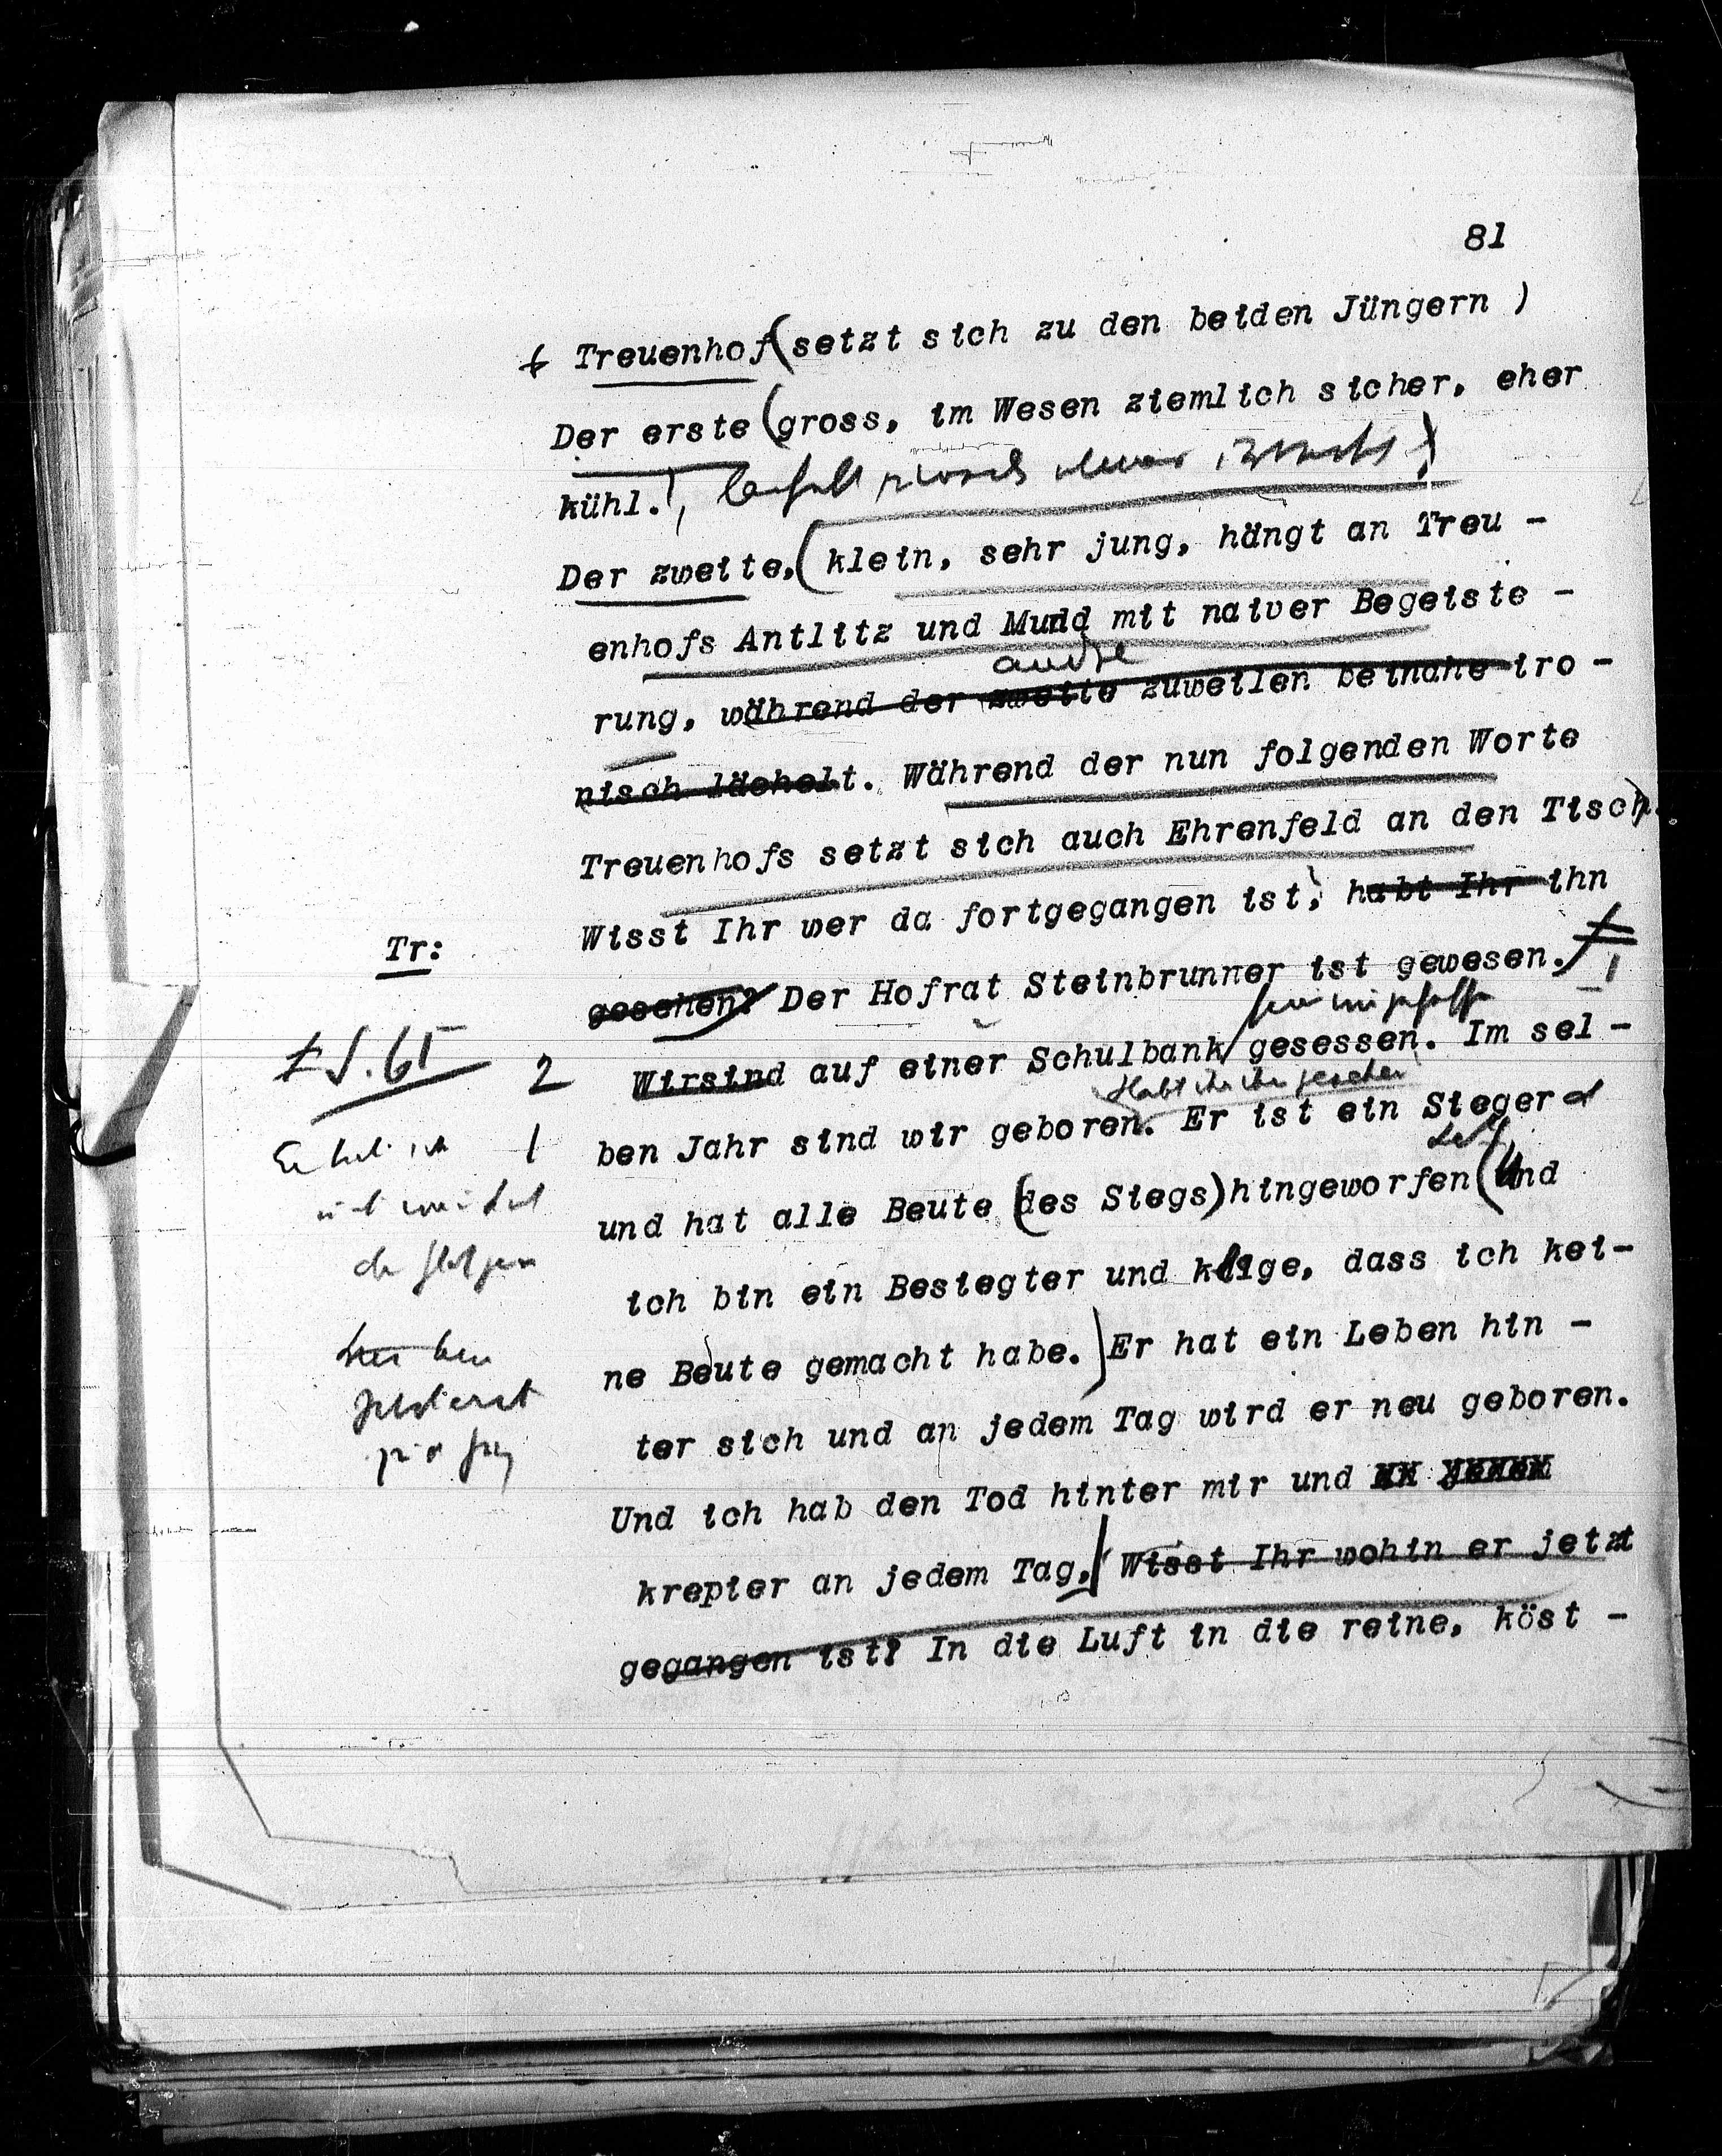 81
Treuenhof (setzt sich zu den beiden Jüngern )
Der erste (gross, im Wesen ziemlich sicher, eher
kühl.
Der zweite, (klein, sehr jung, hängt an Treu -
enhofs Antlitz und Mund mit naiver Begeiste -
andre
rung, während der zweite zuweilen beinahe iro -
nisch lächelt. Während der nun folgenden Worte
Treuenhofs setzt sich auch Ehrenfeld an den Tisch.
Tr: Wisst Ihr wer da fortgegangen ist, habt Ihr ihn
gesehen? Der Hofrat Steinbrunner ist gewesen.
ǂ S. 65 2 Wirsind auf einer Schulbank gesessen. Im sel -
Habt ihr ihn gesehen
1 ben Jahr sind wir geboren. Er ist ein Sieger
und hat alle Beute (des Siegs) hingeworfen (Und
ich bin ein Besiegter und klage, dass ich kei-
ne Beute gemacht habe.) Er hat ein Leben hin -
ter sich und an jedem Tag wird er neu geboren.
Und ich hab den Tod hinter mir und
krepier an jedem Tag. Wisst Ihr wohin er jetzt
gegangen ist? In die Luft in die reine, köst -